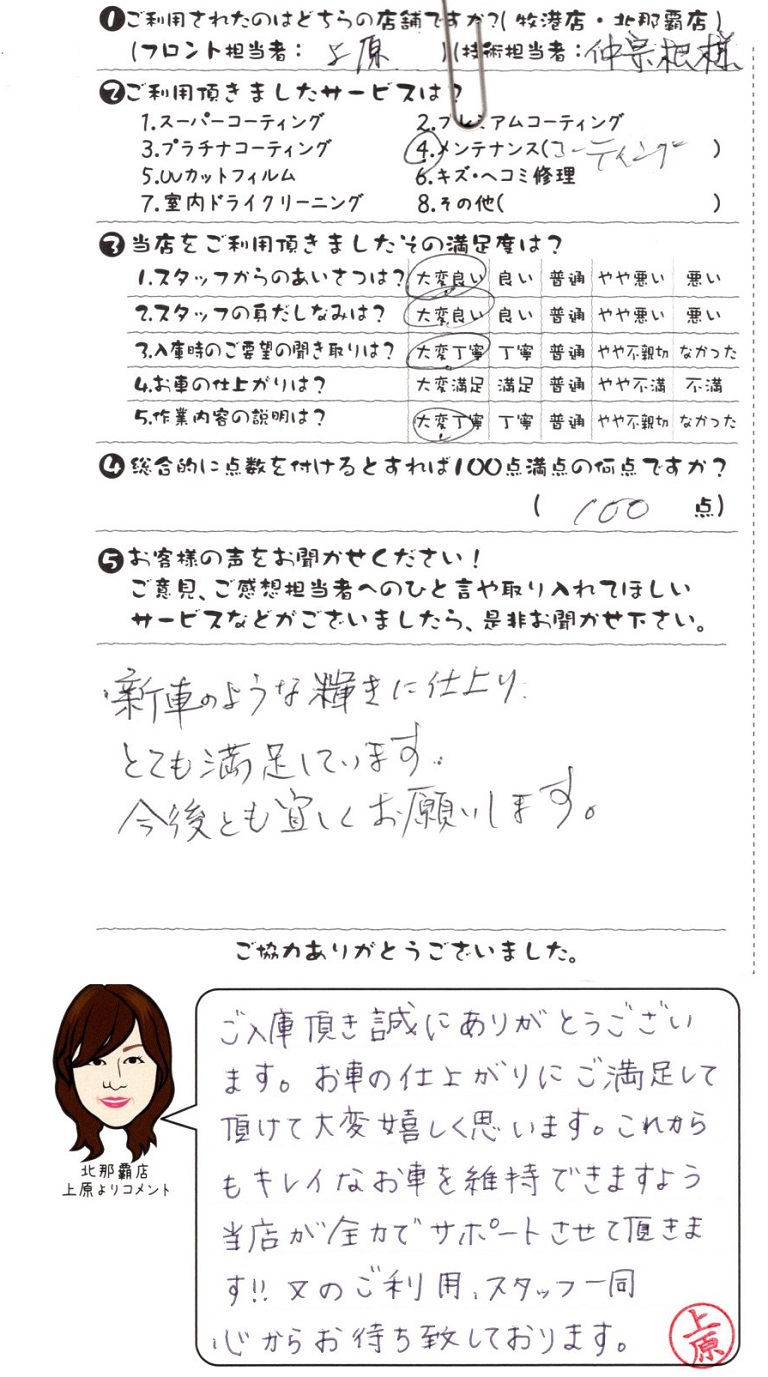 ❶ご利用されたのはどちらの店舗ですか?(牧港店・北那覇店)
(フロント担当者: 上原 )(技術担当者:仲宗根様
❷ご利用頂きましたサービスは?
1.スーパーコーティング 2.プレミアムコーティング
3.プラチナコーティング 4.メンテナンス(コーティング )
5.UVカットフィルム 6.キズ・ヘコミ修理
7.室内ドライクリーニング 8.その他( )
❸当店をご利用頂きましたその満足度は?
1.スタッフからのあいさつは? 大変良い 良い 普通 やや悪い 悪い
2.スタッフの身だしなみは? 大変良い 良い 普通 やや悪い 悪い
3.入庫時のご要望の聞き取りは? 大変丁寧 丁寧 普通 やや不親切 なかった
4.お車の仕上がりは? 大変満足 満足 普通 やや不満 不満
5.作業内容の説明は? 大変丁寧 丁寧 普通 やや不親切 なかった
❹総合的に点数を付けるとすれば100点満点の何点ですか?
( 100 点)
❺お客様の声をお聞かせください!
ご意見、ご感想担当者へのひと言や取り入れてほしい
サービスなどがございましたら、是非お聞かせ下さい。
・新車のような輝きに仕上り、
とても満足しています。
今後とも宜しくお願いします。
ご協力ありがとうございました。
北那覇店
上原よりコメント
ご入庫頂き誠にありがとうござい
ます。お車の仕上がりにご満足して
頂けて大変嬉しく思います。これから
もキレイなお車を維持できますよう
当店が全力でサポートさせて頂きま
す!!又のご利用、スタッフ一同
心からお待ち致しております。
上原